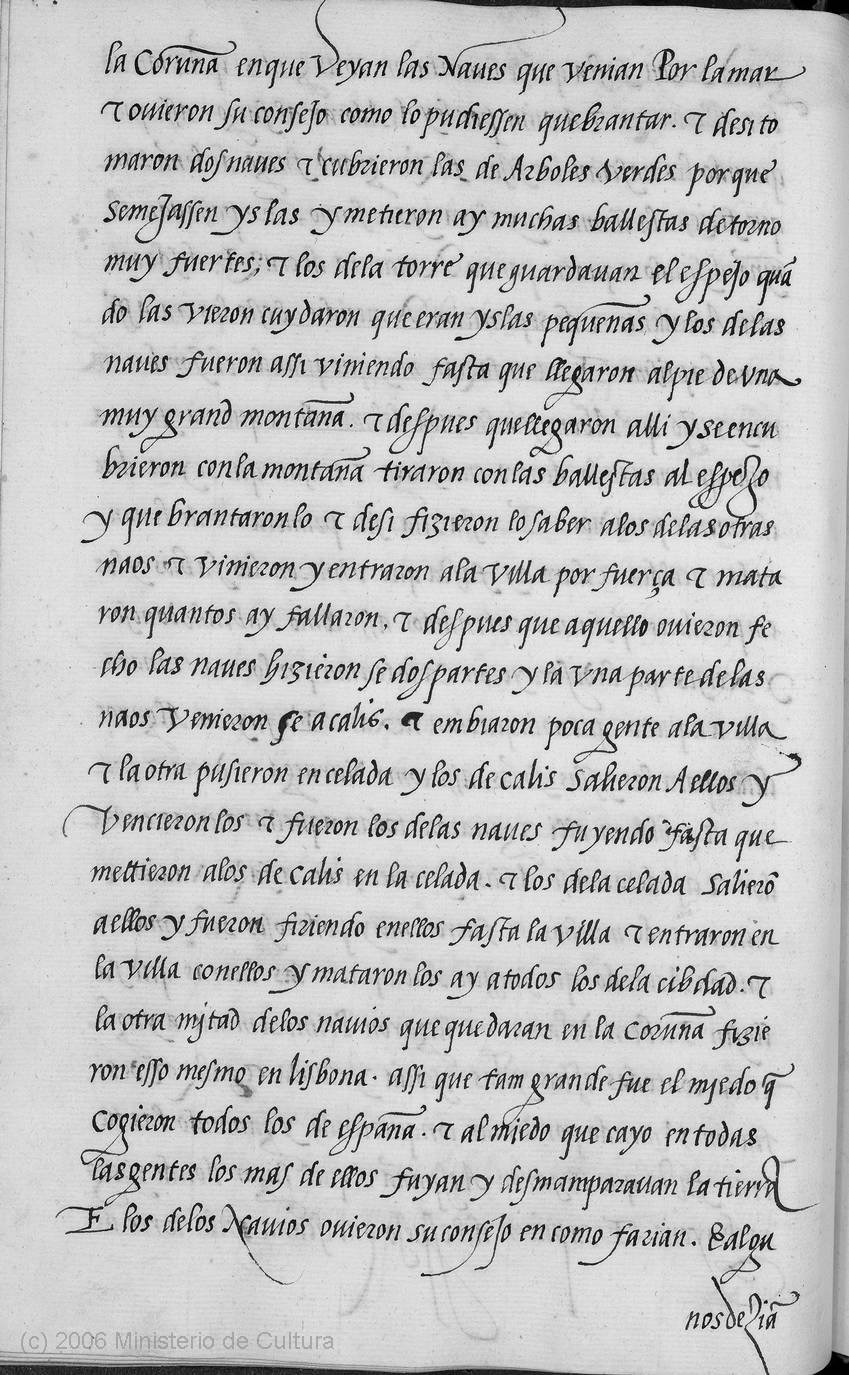 la Coruña enque Veyan las Naves que venian Por lamar
τ ovieron su consejo como lo pudiessen quebrantar. τ desi to
maron dos naves τ cubrieron las de Arboles Verdes porque
semejassen yslas y metieron ay muchas ballestas de torno
muy fuertes; τ los dela torre que guardavan el espejo quā
do las vieron cuydaron que eran yslas pequeñas y los delas
naves fueron assi viniendo fasta que llegaron alpie de Una
muy grand montaña. τ despues quellegaron alli y se encu
brieron con la montaña tiraron con las ballestas al espejo
y que brantaron lo τ desi fizieron lo saber alos delas otras
naos τ vinieron y entraron ala Villa por fuerça τ mata
ron quantos ay fallaron, τ despues que aquello ovieron fe
cho las naves hizieron se dos partes y la Una parte delas
naos Venieron se a calis. τ embiaron poca gente ala villa
τ la otra pusieron en celada y los de calis Salieron A ellos y
Vencieron los τ fueron los delas naves fuyendo fasta que
mettieron alos de calis en la celada. τ los dela celada Salierō
aellos y fueron firiendo enellos fasta la villa τ entraron en
la Villa conellos y mataron los ay atodos los dela cibdad. τ
la otra mjtad delos navios que quedaran en la Coruña fizie
ron esso mesmo en lisbona. assi que tam grande fue el mjedo q̄
Cogieron todos los de españa. τ al mjedo que cayo en todas
las gentes los mas de ellos fuyan y desmamparavan la tierra
E los delos Navios ovieron su consejo en como farian. E algu
nos deziā
(c) 2006 Ministerio de Cultura